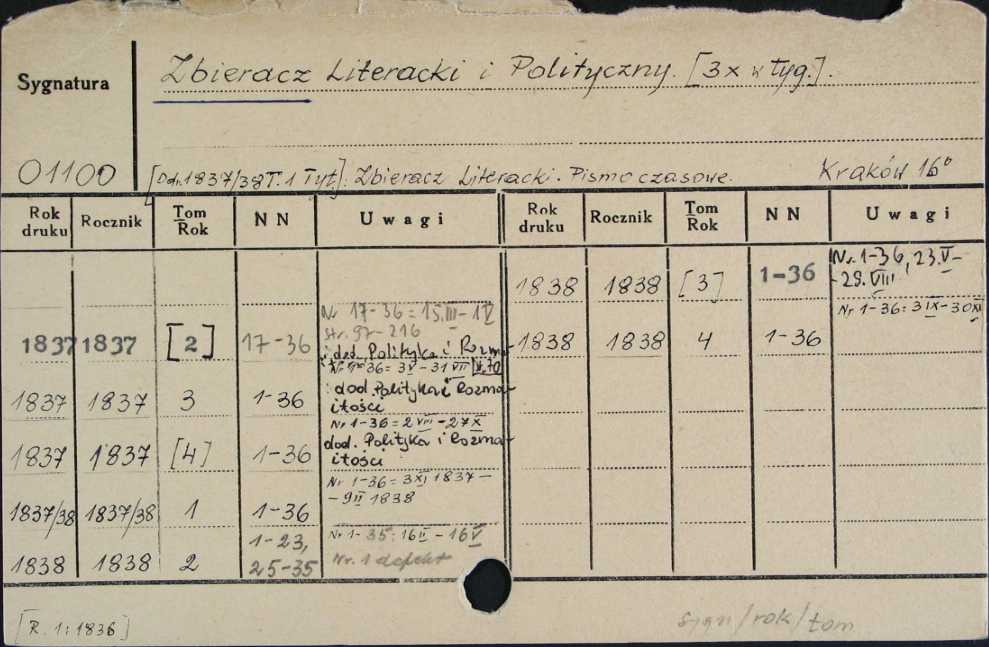 Zbieracz Literacki i Polityczny. [3x w tyg.].
Sygnatura
01100 [Od r. 1837/38 T. 1 Tyt]: Zbieracz Literacki. Pismo czasowe. Kraków 16°
Rok druku Rocznik Tom Rok NN Uwagi Rok druku Rocznik Tom Rok NN Uwagi
1838 1838 [3] 1-36 Nr. 1-36, 23.V-
-29.VIII
Nr 17-36 = 15.III-1V
str. 97-216
Nr 1-36: 3IX-30XI
1837 1837 [2] 17-36
1838 1838 4 1-36
i dod. Polityka i Rozma-
36 = 3V - 31VII
1837 1837 3 1-36 i dod. Polityka i Rozma-
itości
Nr 1-36 = 2VIII - 27X
1837 1837 [4] 1-36 dod. Polityka i Rozma-
itości
Nr 1-36 = 3XI 1837 -
- 9II 1838
1837/38 1837/38 1 1-36
1838 1838 2 1-23,
25-35
Nr 1-35: 16II - 16V
Nr. 1 defekt
[R. 1: 1836]
sygn/rok/tom